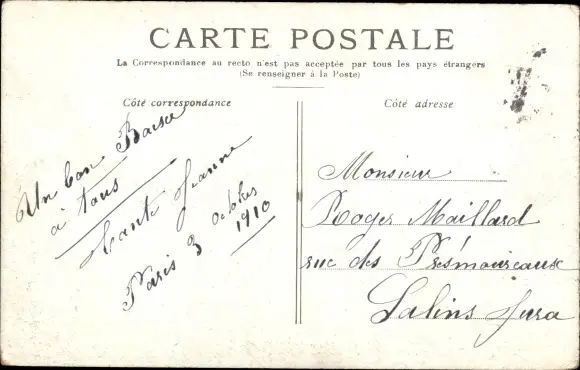 CARTE POSTALE
La Correspondance au recto n'est pas acceptée par tous les pays étrangers
(Se renseigner à la Poste)
Côté correspondance
Un bon Baiser
à tous
Tante Jeanne
Paris 3 Octobre
1910
Côté adresse
Monsieur
Roger Maillard
rue des Présmoureaux
Salins Jura